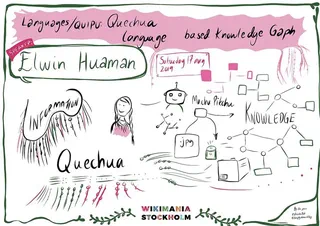 Languages/QUIPU: Quechua
Language based Knowledge Gaph
SPEAKER
Elwin Huaman
Saturday 17 Aug
2019
INFORMATION
Machu Pitchu
KNOWLEDGE
Quechua
WIKIMANIA
STOCKHOLM